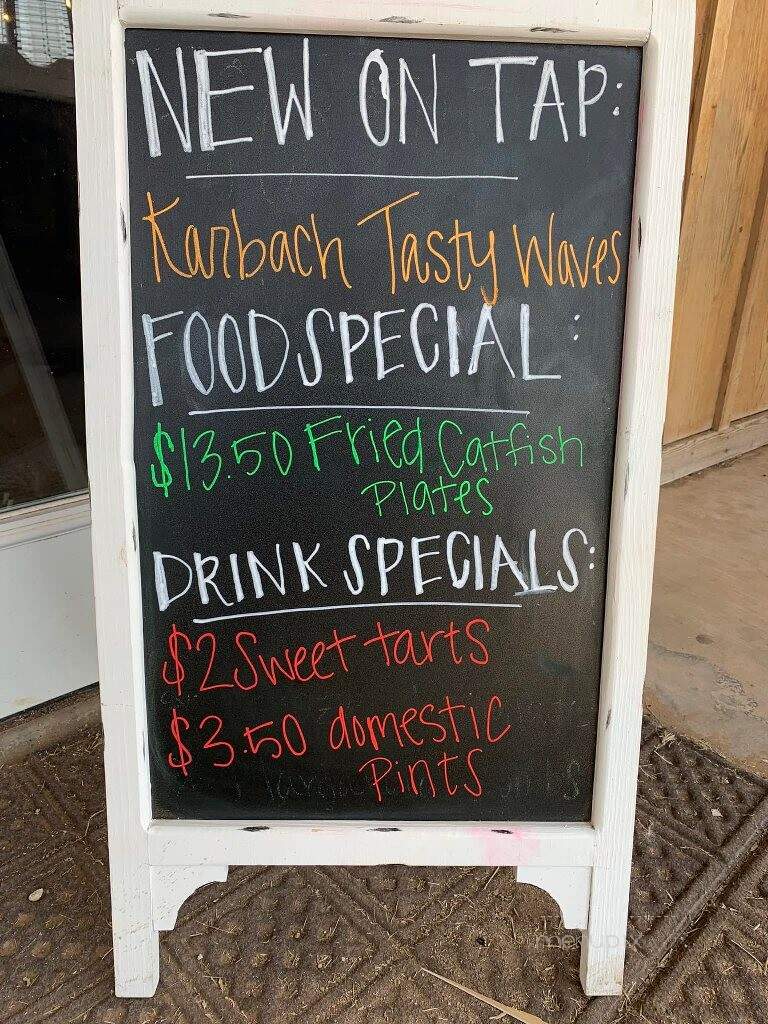 NEW ON TAP:
Karbach Tasty Waves
FOOD SPECIAL:
$13.50 Fried Catfish
Plates
DRINK SPECIALS:
$2 Sweet tarts
$3.50 domestic
Pints